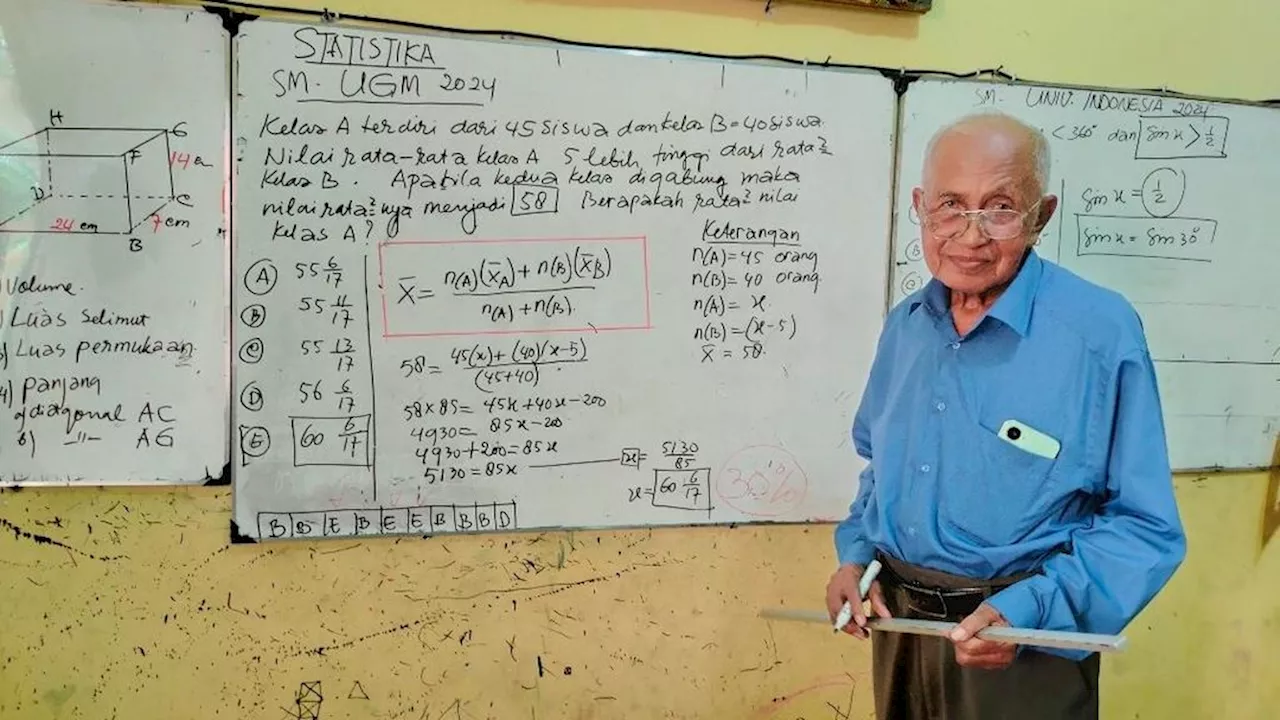 H
G
F
14 cm
D
C
24 cm
7 cm
B
Volume.
Luas Selimut
Luas permukaan
4) Panjang
a) diagonal AC
b) —"— AG
STATISTIKA
SM. UGM 2024
Kelas A terdiri dari 45 siswa dan kelas B = 40 siswa.
Nilai rata-rata kelas A 5 lebih tinggi dari rata²
kelas B. Apabila kedua kelas digabung maka
nilai rata² nya menjadi 58 Berapakah rata² nilai
kelas A?
A 55 6/17
B 55 11/17
C 55 13/17
D 56 6/17
E 60 6/17
X̄ = n(A)(X̄A) + n(B)(X̄B) / n(A) + n(B).
58 = 45(x) + (40)(x-5) / (45+40)
58 x 85 = 45x + 40x - 200
4930 = 85x - 200
4930 + 200 = 85x
5130 = 85x
x = 5130/85
x = 60 6/17
Keterangan
n(A) = 45 orang
n(B) = 40 orang
n(A) = x
n(B) = (x-5)
X̄ = 58.
B B E B E E B B B D
SM. UNIV. INDONESIA 2024
< 360° dan Sin x > 1/2
Sin x = 1/2
Sin x = Sin 30°